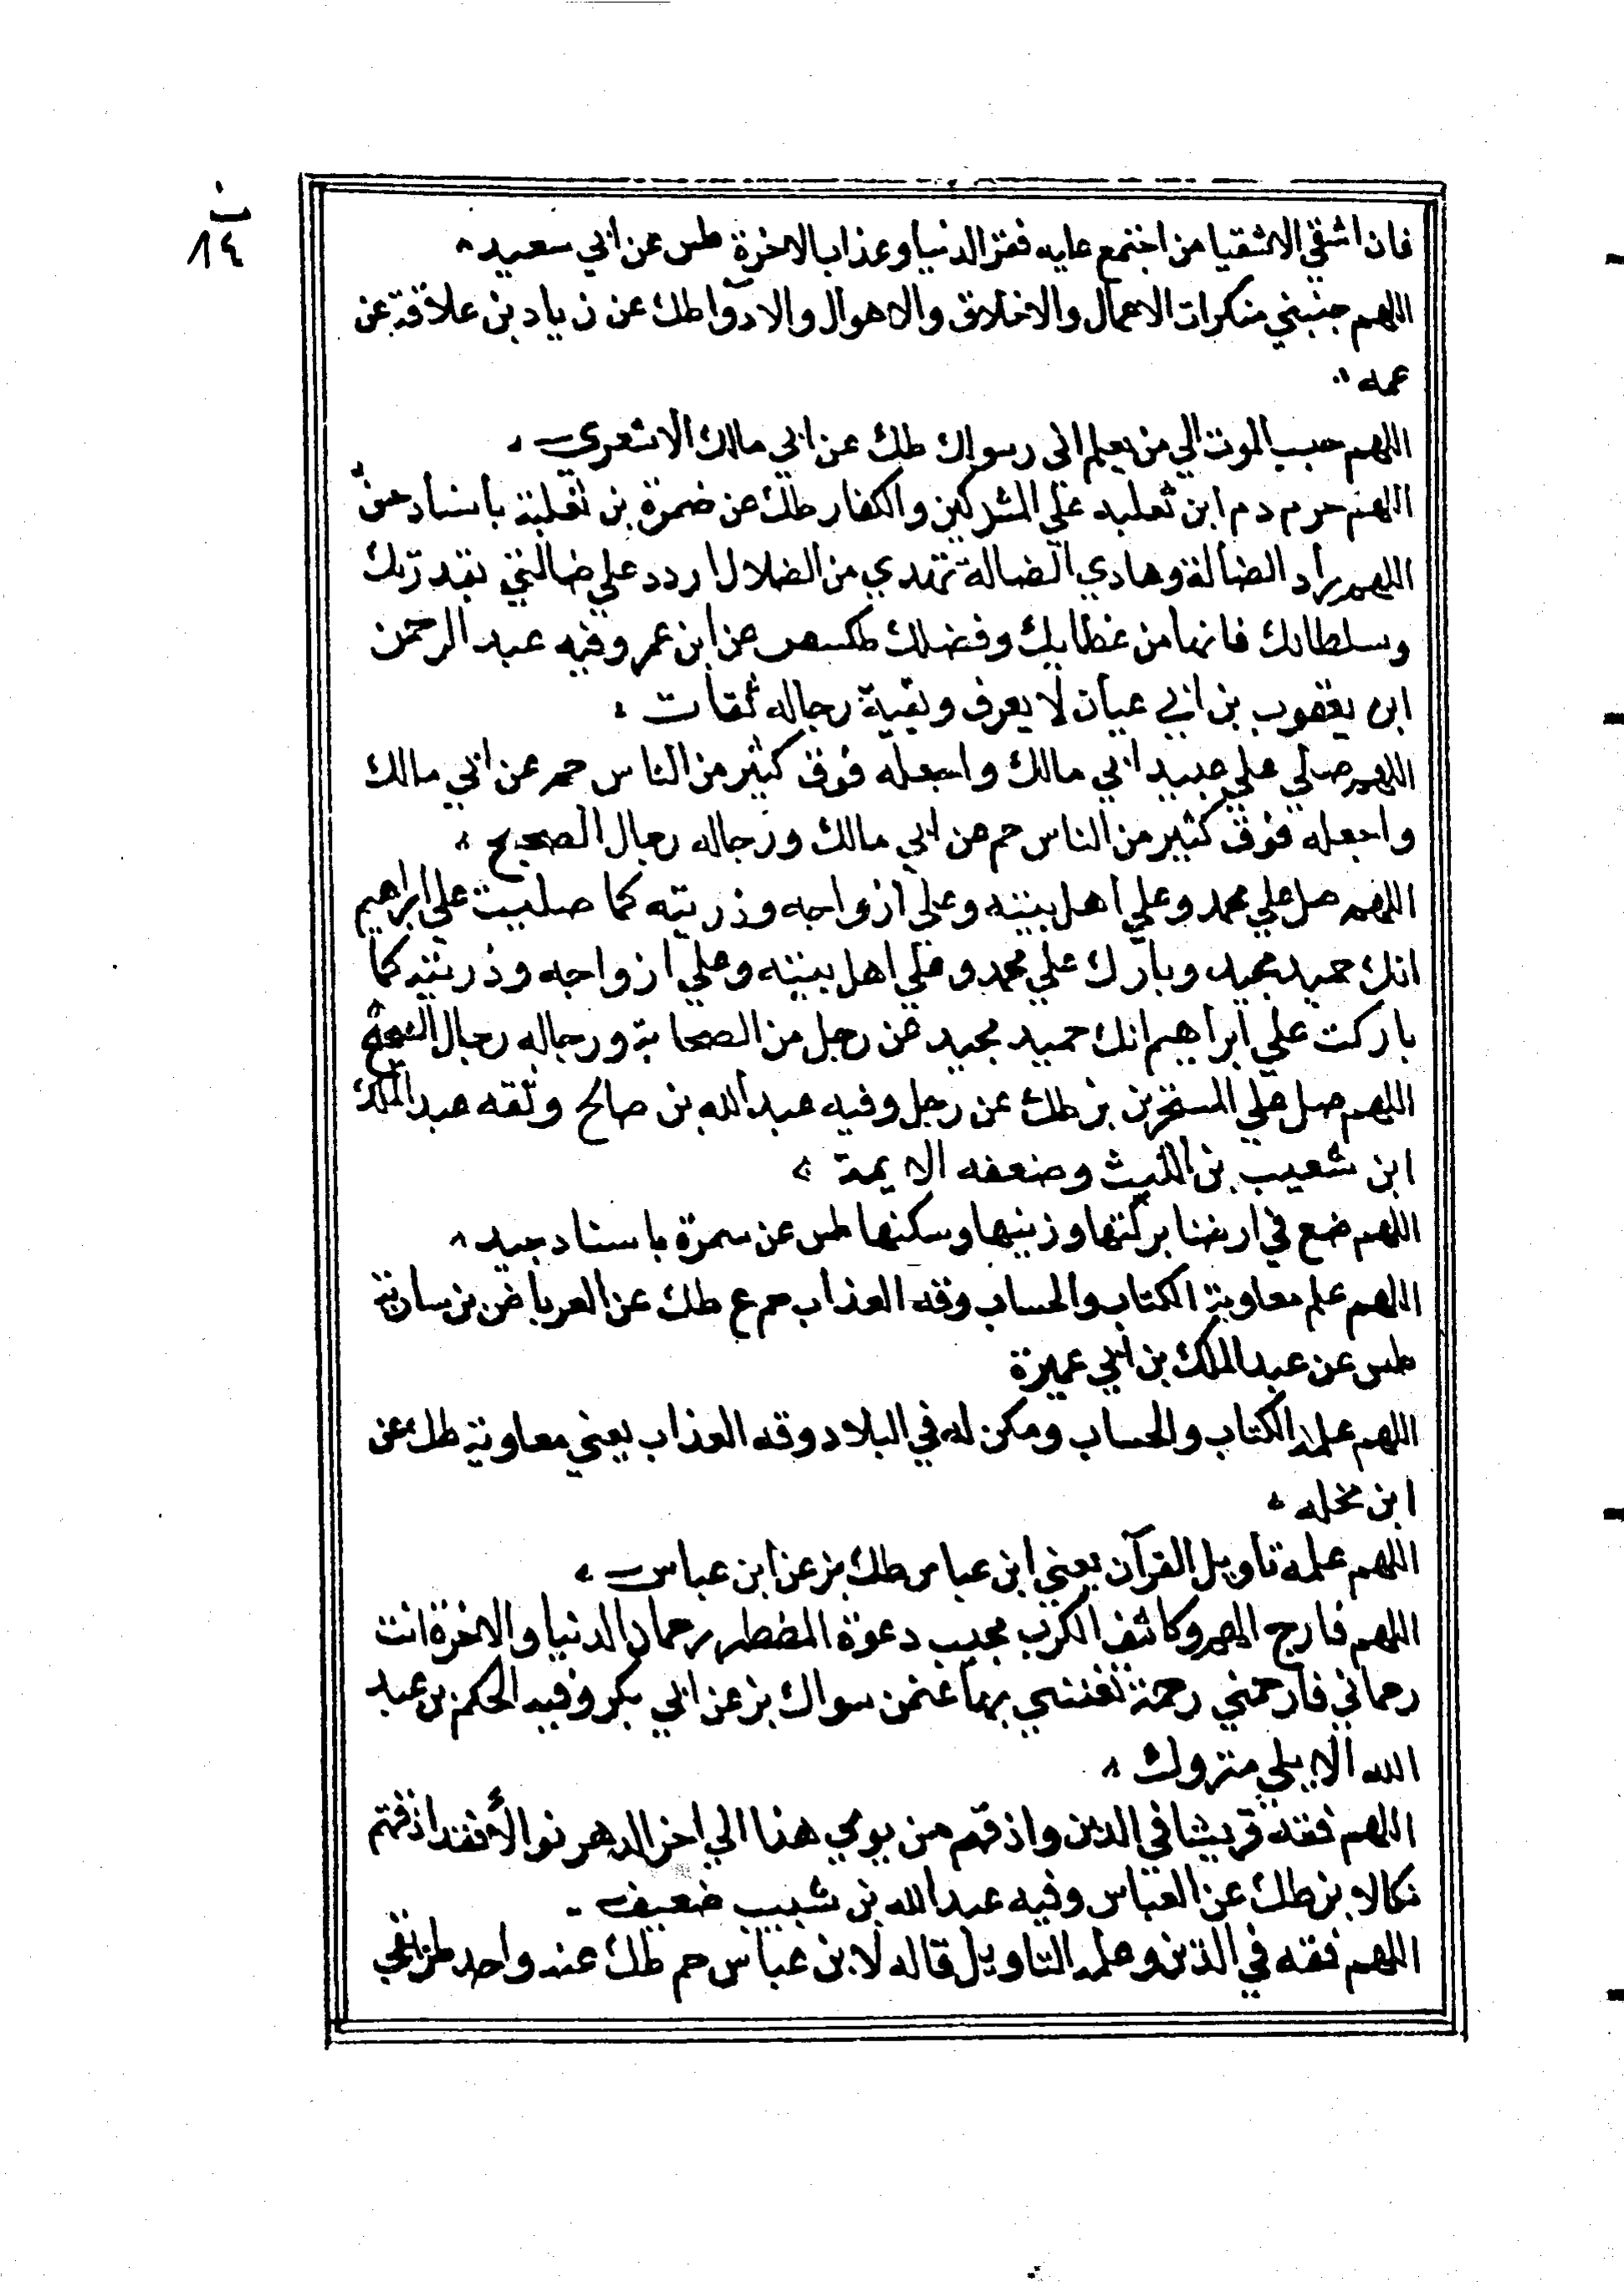 ب
١٤
فان اشقي الاشقيا من اجتمع عليه فقر الدنيا وعذاب الاخرة طس عن ابي سعيد
اللهم جنبني منكرات الاعمال والاخلاق والاهوال والادوا طك عن زياد بن علاقة عن
عمه
اللهم حبب الموت الي من يعلم اني رسولك طك عن ابي مالك الاشعري
اللهم حرم دم ابن ثعلبه علي المشركين والكفار طك عن ضمرة بن ثعلبة باسناد حسن
اللهم راد الضالة وهادي الضالة تهدي من الضلال اردد علي ضالتي بقدرتك
وسلطانك فانها من عطايك وفضلك طكسص عن ابن عمر وفيه عبد الرحمن
ابن يعقوب بن ابي عباد لا يعرف وبقية رجاله ثقات
اللهم صلي علي عبيد ابي مالك واجعله فوق كثير من الناس حم عن ابي مالك
واجعله فوق كثير من الناس حم عن ابي مالك ورجاله رجال الصحيح
اللهم صل علي محمد وعلي اهل بيته وعلي ازواجه وذريته كما صليت علي ابراهيم
انك حميد مجيد وبارك علي محمد وعلي اهل بيته وعلي ازواجه وذريته كما
باركت علي ابراهيم انك حميد مجيد عن رجل من الصحابة ورجاله رجال الصحيح
اللهم صل علي المتسحرين بز طك عن رجل وفيه عبد الله بن صالح وثقه عبد الملك
ابن شعيب بن الليث وضعفه الايمة
اللهم ضع في ارضنا بركتها وزينها وسكنها طس عن سمرة باسناد جيد
اللهم علم معاوية الكتاب والحساب وقه العذاب حم ع طك عن العرباض بن سارية
طس عن عبد الملك بن ابي عميرة
اللهم علمه الكتاب والحساب ومكن له في البلاد وقه العذاب يعني معاوية طك عن
ابن مخلد
اللهم علمه تاويل القرآن يعني ابن عباس طك بز عن ابن عباس
اللهم فارج الهم وكاشف الكرب مجيب دعوة المضطر رحمان الدنيا والاخرة انت
رحماني فارحمني رحمة تغنني بها عنمن سواك بز عن ابي بكر وفيه الحكم بن عبد
الله الايلي متروك
اللهم فقه قريشا في الدين واذقهم من يومي هذا الي اخر الدهر نوالا فقد اذقتهم
نكالا بز طك عن العباس وفيه عبد الله بن شبيب ضعيف
اللهم فقه في الدين وعلمه التاويل قاله لابن عباس حم طك عنه واحد